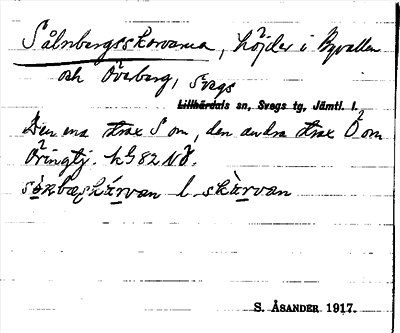 Sålnbergsskarvarna, höjder i Byvallen
och Överberg, Svegs
Lillhärdals sn, Svegs tg, Jämtl. l.
Den ena strax S om, den andra strax Ö om
Öringtj. hG 82 NÖ.
l. skàrvan
S. ÅSANDER 1917.